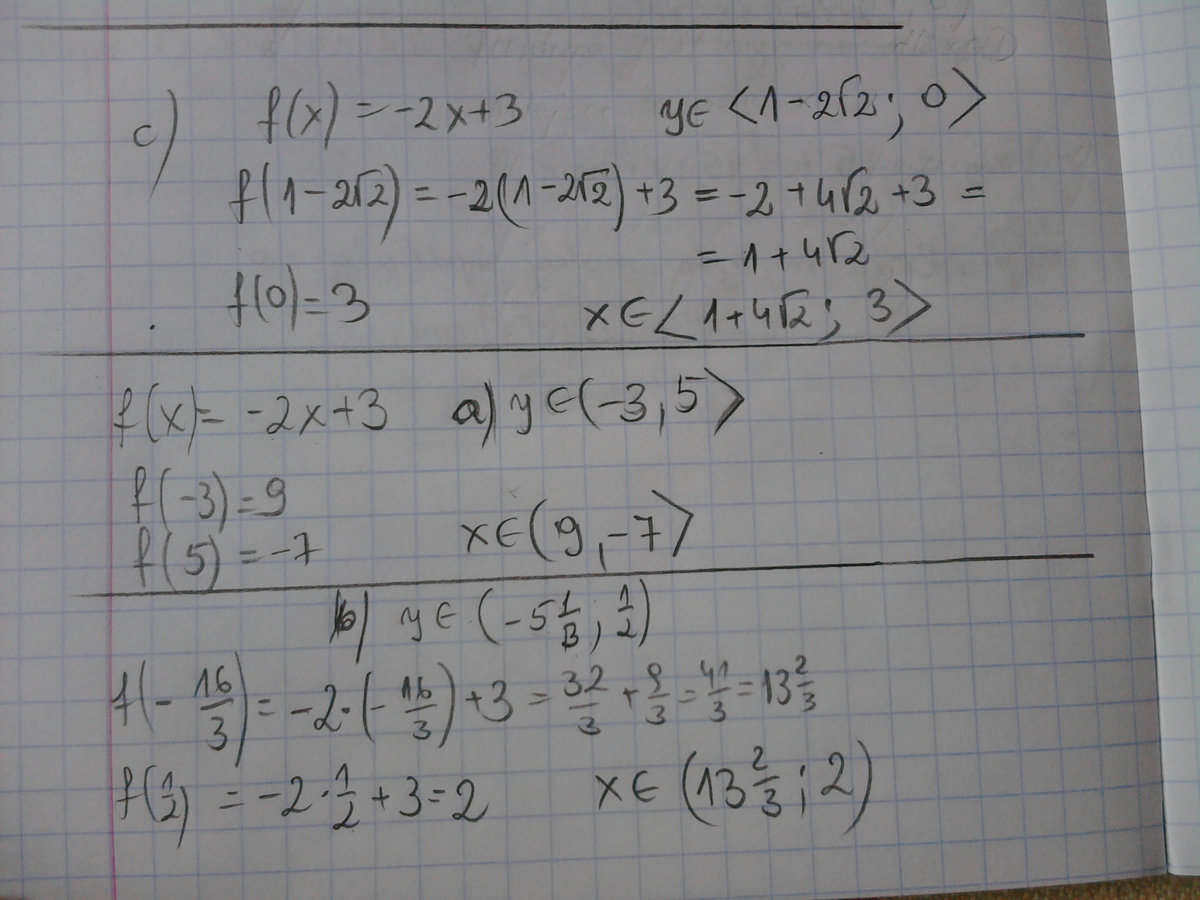 c) f(x) = -2x+3 y∈ <1-2√2; 0>
f(1-2√2) = -2(1-2√2)+3 = -2+4√2+3 =
= 1+4√2
f(0)=3 x∈<1+4√2; 3>
f(x)= -2x+3 a) y∈(-3,5>
f(-3)=9
f(5)=-7 x∈(9,-7>
b) y∈ (-5 1/3; 1/2)
f(-16/3) = -2·(-16/3)+3 = 32/3 + 9/3 = 41/3 = 13 2/3
f(1/2) = -2·1/2+3=2 x∈ (13 2/3; 2)